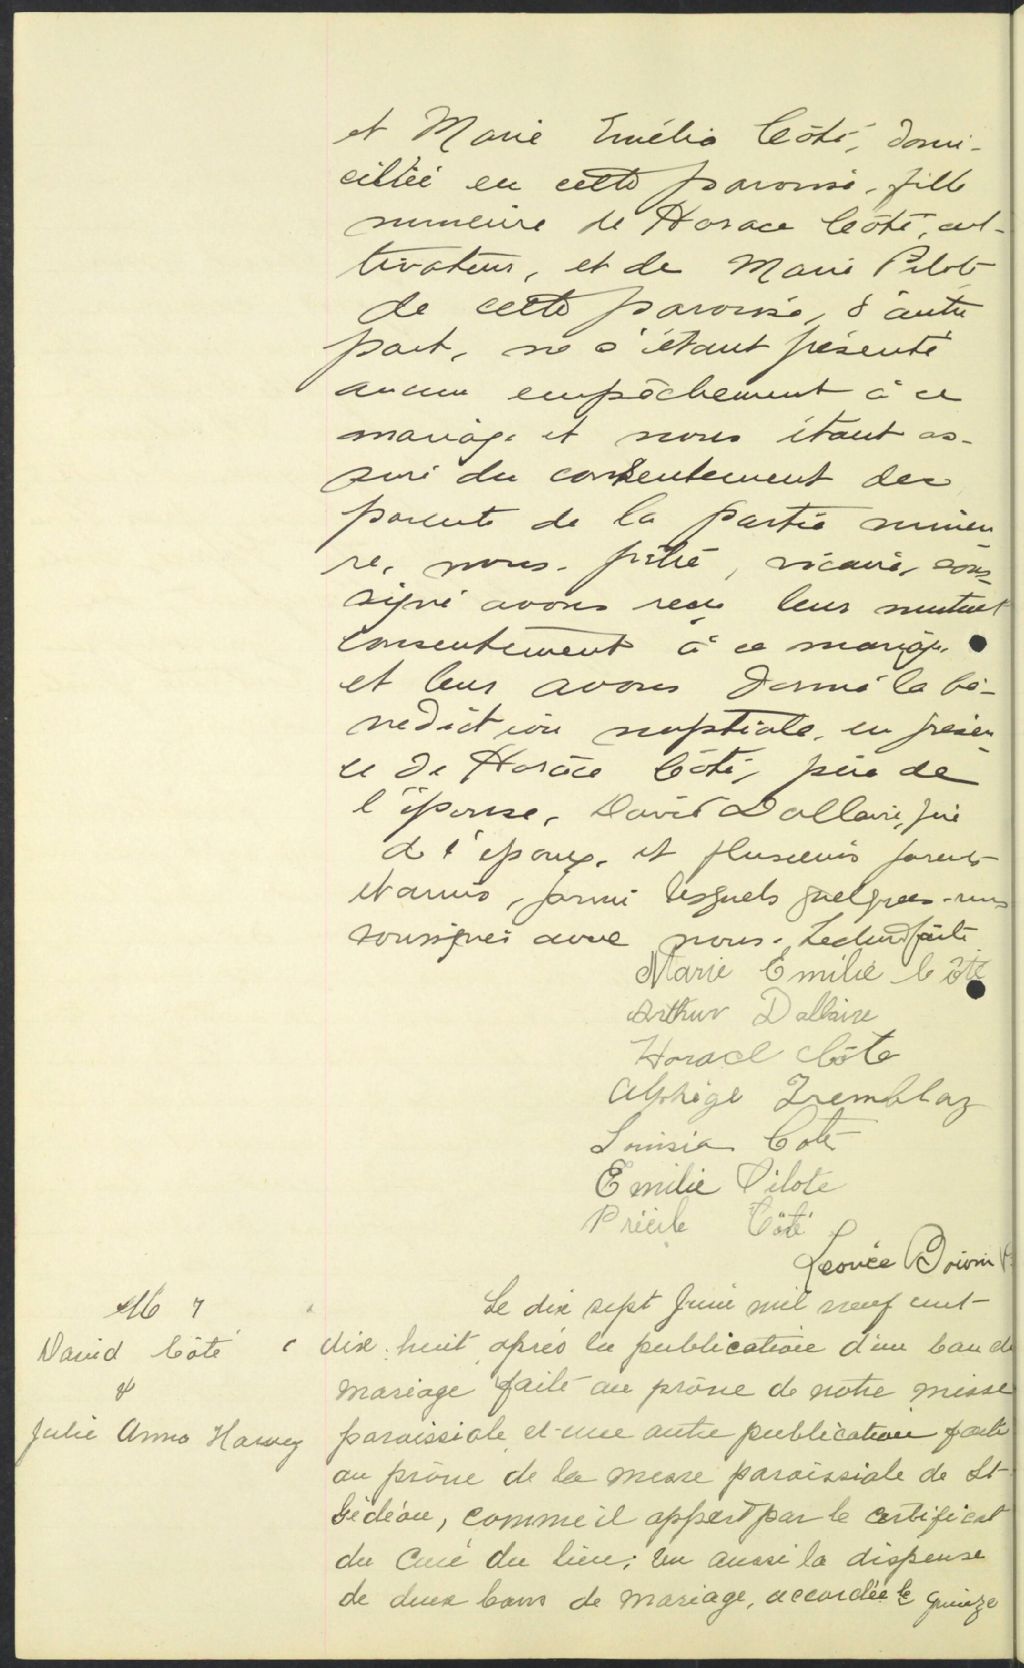 et Marie Emélia Côté, domi-
ciliée en cette paroisse, fille
mineure de Horace Côté, cul-
tivateur, et de Marie Pilote
de cette paroisse, d'autre
part, ne s'étant présenté
aucun empêchement à ce
mariage et nous étant as-
suré du consentement des
parents de la partie mineu
re, nous, prêtre, vicaire, sous-
signé avons reçu leur mutuel
consentement à ce mariage
et leur avons donné la bé-
nédiction nuptiale, en présen-
ce de Horace Côté, père de
l'épouse, David Dallaire, père
de l'époux, et plusieurs parents
et amis, parmi lesquels quelques-uns
soussignés avec nous. Lecture faite
Marie Emilie Côté
Arthur Dallaire
Horace Côté
Alphége Tremblay
Louisia Coté
Emilie Pilote
Précile Côté
Leonce Boivin
M 7
David Côté
&
Julie Anna Harvey
Le dix sept Juin mil neuf cent
dix huit, après la publication d'un ban de
mariage faite au prône de notre messe
paroissiale et une autre publication faite
au prône de la messe paroissiale de St
Gédéon, comme il appert par le certificat
du Curé du lieu; vu aussi la dispense
de deux bans de mariage, accordée le quinze